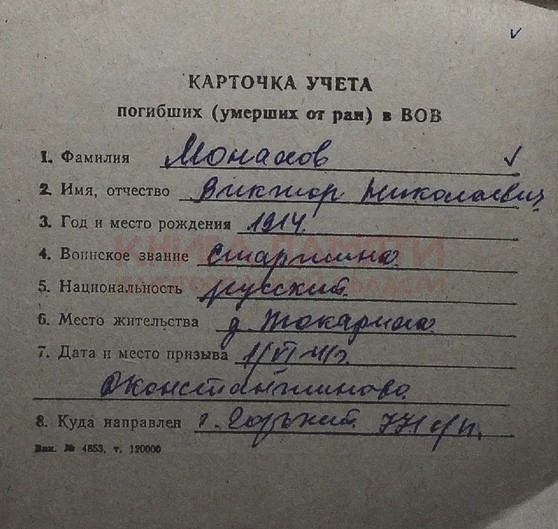 КАРТОЧКА УЧЕТА
погибших (умерших от ран) в ВОВ
1. Фамилия Монахов
2. Имя, отчество Виктор Николаевич
3. Год и место рождения 1914.
КНИГА ПАМЯТИ
4. Воинское звание Старшина
5. Национальность русский.
6. Место жительства д. Токарина
7. Дата и место призыва
Дконстантиново
8. Куда направлен г. Горький
Вип. № 4853, т. 120000